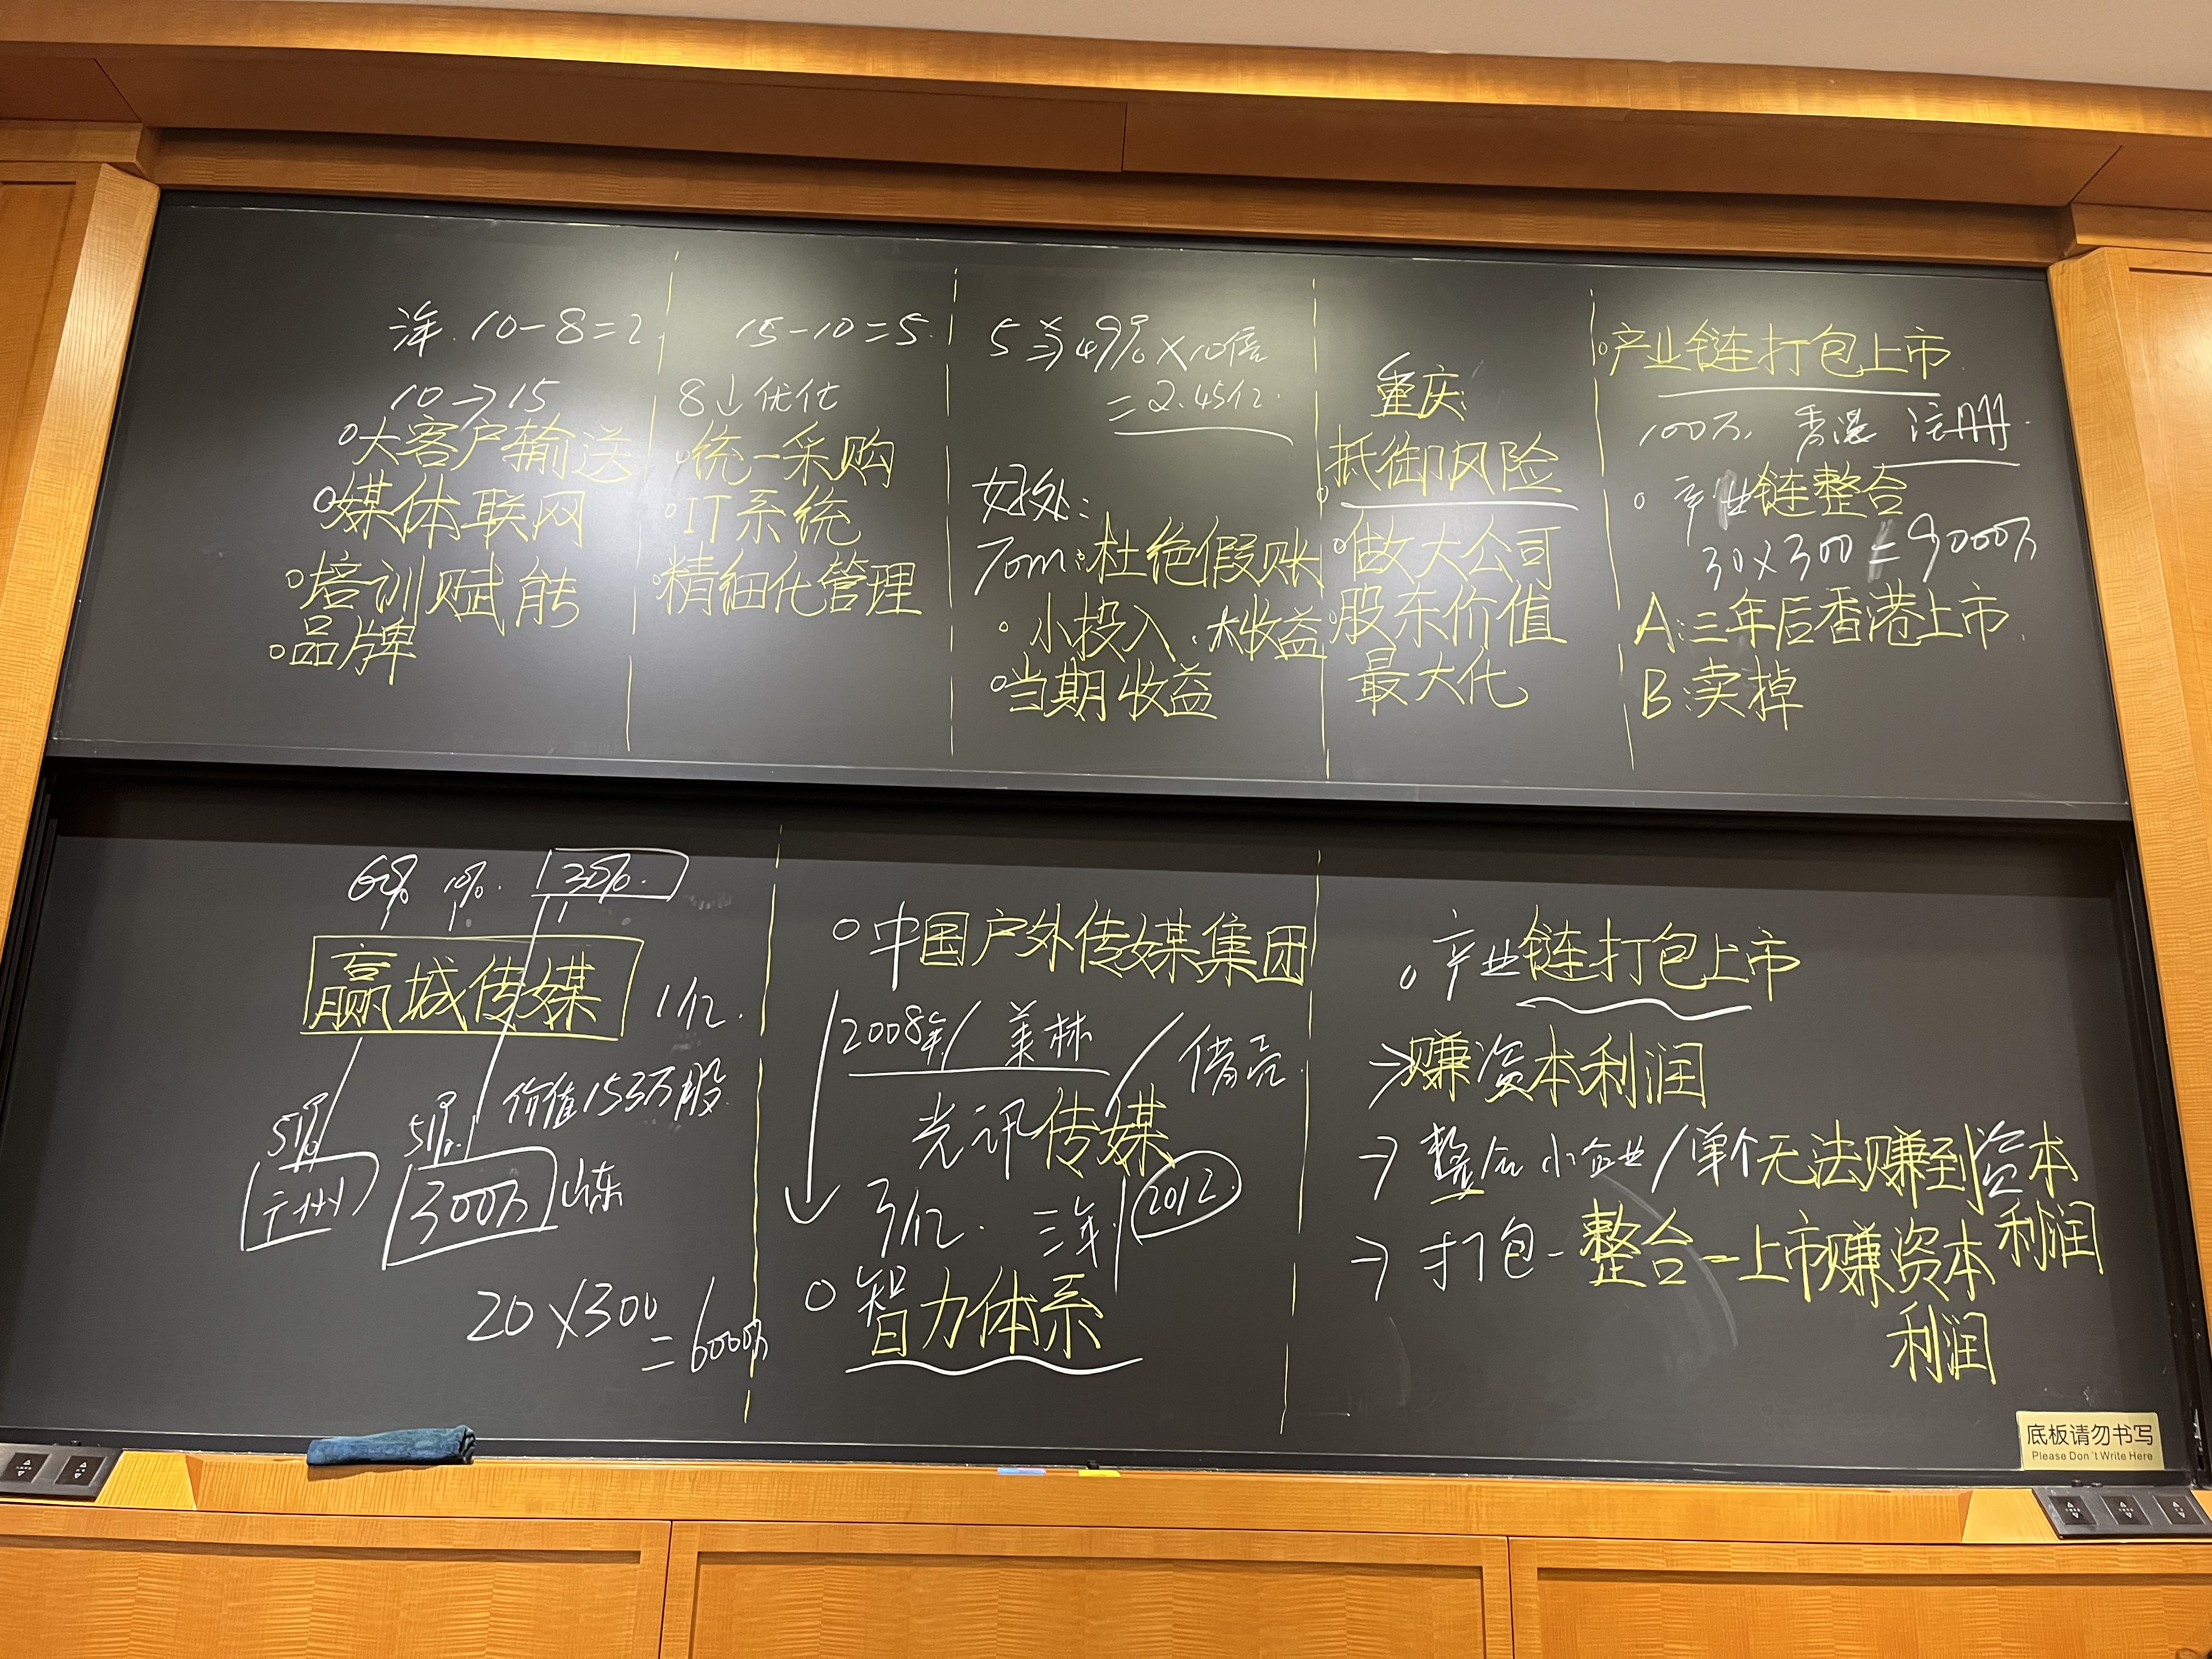 三年. 10-8=2
10→15
大客户输送
媒体联网
培训赋能
品牌
15-10=5.
8↓优化
统一采购
IT系统
精细化管理
49%×10倍
=2.45亿.
好处:
Tom:杜绝假账
小投入.大收益
当期收益
重庆:
抵御风险
做大公司
股东价值
最大化
产业链打包上市
100万 香港 注册.
产业链整合
30×300=9000万
A:三年后香港上市.
B:卖掉
60% 10%. 30%.
赢城传媒
1亿.
51% 51% 价值153万股
广州 300万 山东
20×300
=6000万
中国户外传媒集团
2008年/美林/借壳.
光讯传媒
3亿. 三年/2012
智力体系
产业链打包上市
→赚资本利润
→整合小企业/单个无法赚到资本
利润
→打包-整合-上市赚资本
利润
底板请勿书写
Please Don't Write Here